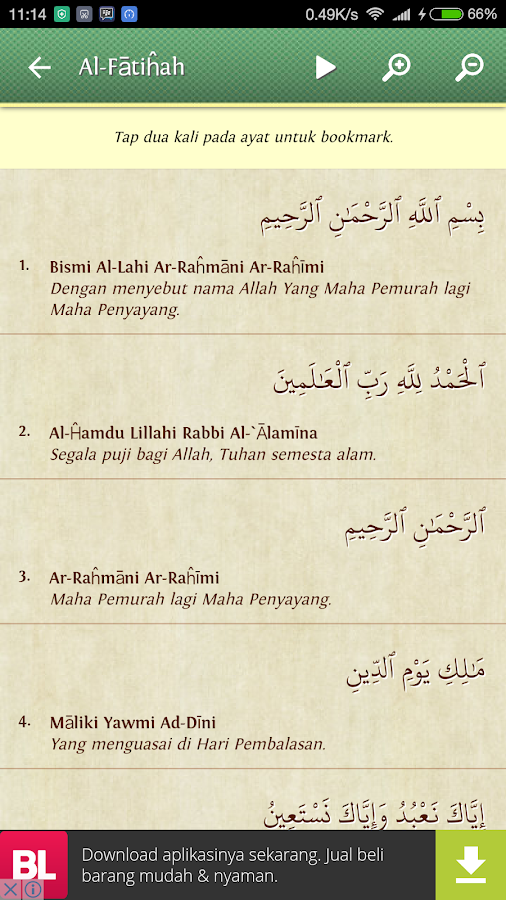 11:14 0.49K/s 66%
Al-Fātiĥah
Tap dua kali pada ayat untuk bookmark.
بِسْمِ ٱللَّهِ ٱلرَّحْمَٰنِ ٱلرَّحِيمِ
1. Bismi Al-Lahi Ar-Raĥmāni Ar-Raĥīmi
Dengan menyebut nama Allah Yang Maha Pemurah lagi
Maha Penyayang.
ٱلْحَمْدُ لِلَّهِ رَبِّ ٱلْعَٰلَمِينَ
2. Al-Ĥamdu Lillahi Rabbi Al-`Ālamīna
Segala puji bagi Allah, Tuhan semesta alam.
ٱلرَّحْمَٰنِ ٱلرَّحِيمِ
3. Ar-Raĥmāni Ar-Raĥīmi
Maha Pemurah lagi Maha Penyayang.
مَٰلِكِ يَوْمِ ٱلدِّينِ
4. Māliki Yawmi Ad-Dīni
Yang menguasai di Hari Pembalasan.
إِيَّاكَ نَعْبُدُ وَإِيَّاكَ نَسْتَعِينُ
BL
Download aplikasinya sekarang. Jual beli
barang mudah & nyaman.